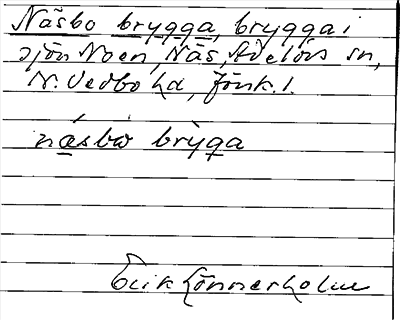 Näsbo brygga, brygga i
sjön Noen, Näs, Adelövs sn,
N. Vedbo hd, Jönk. l.
næsbo bryga
Erik Lönnerholm